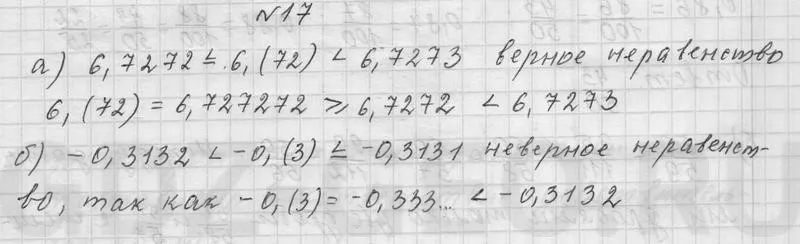 №17
а) 6,7272 ≤ 6,(72) < 6,7273 верное неравенство
6,(72) = 6,727272 ⩾ 6,7272 < 6,7273
б) -0,3132 < -0,(3) ≤ -0,3131 неверное неравенст-
во, так как -0,(3) = -0,333... < -0,3132